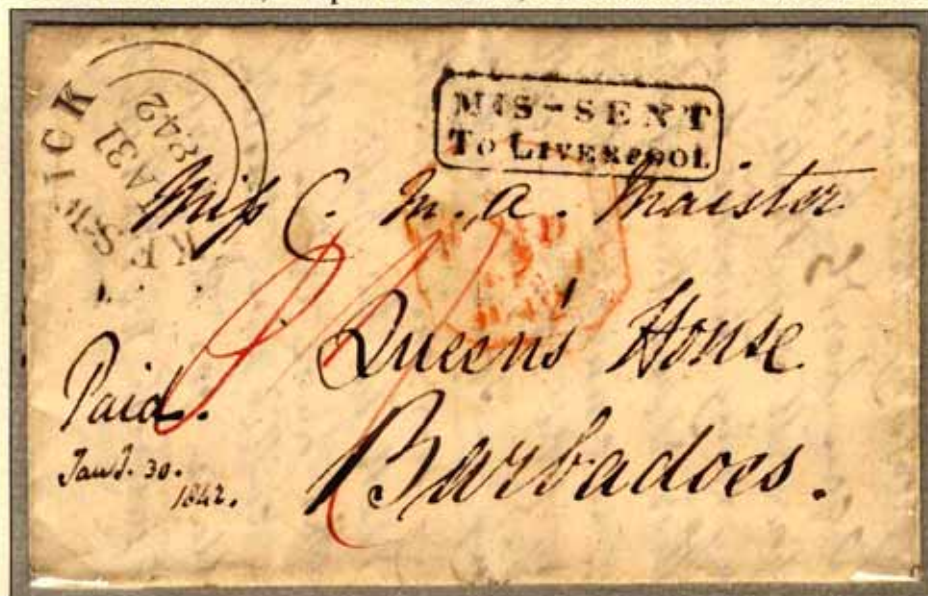 KESWICK
JA31
1842
MIS-SENT
TO LIVERPOOL
Miss C. M. A. Maister
Queen's House
Barbadoes.
Paid.
Jany. 30.
1842.